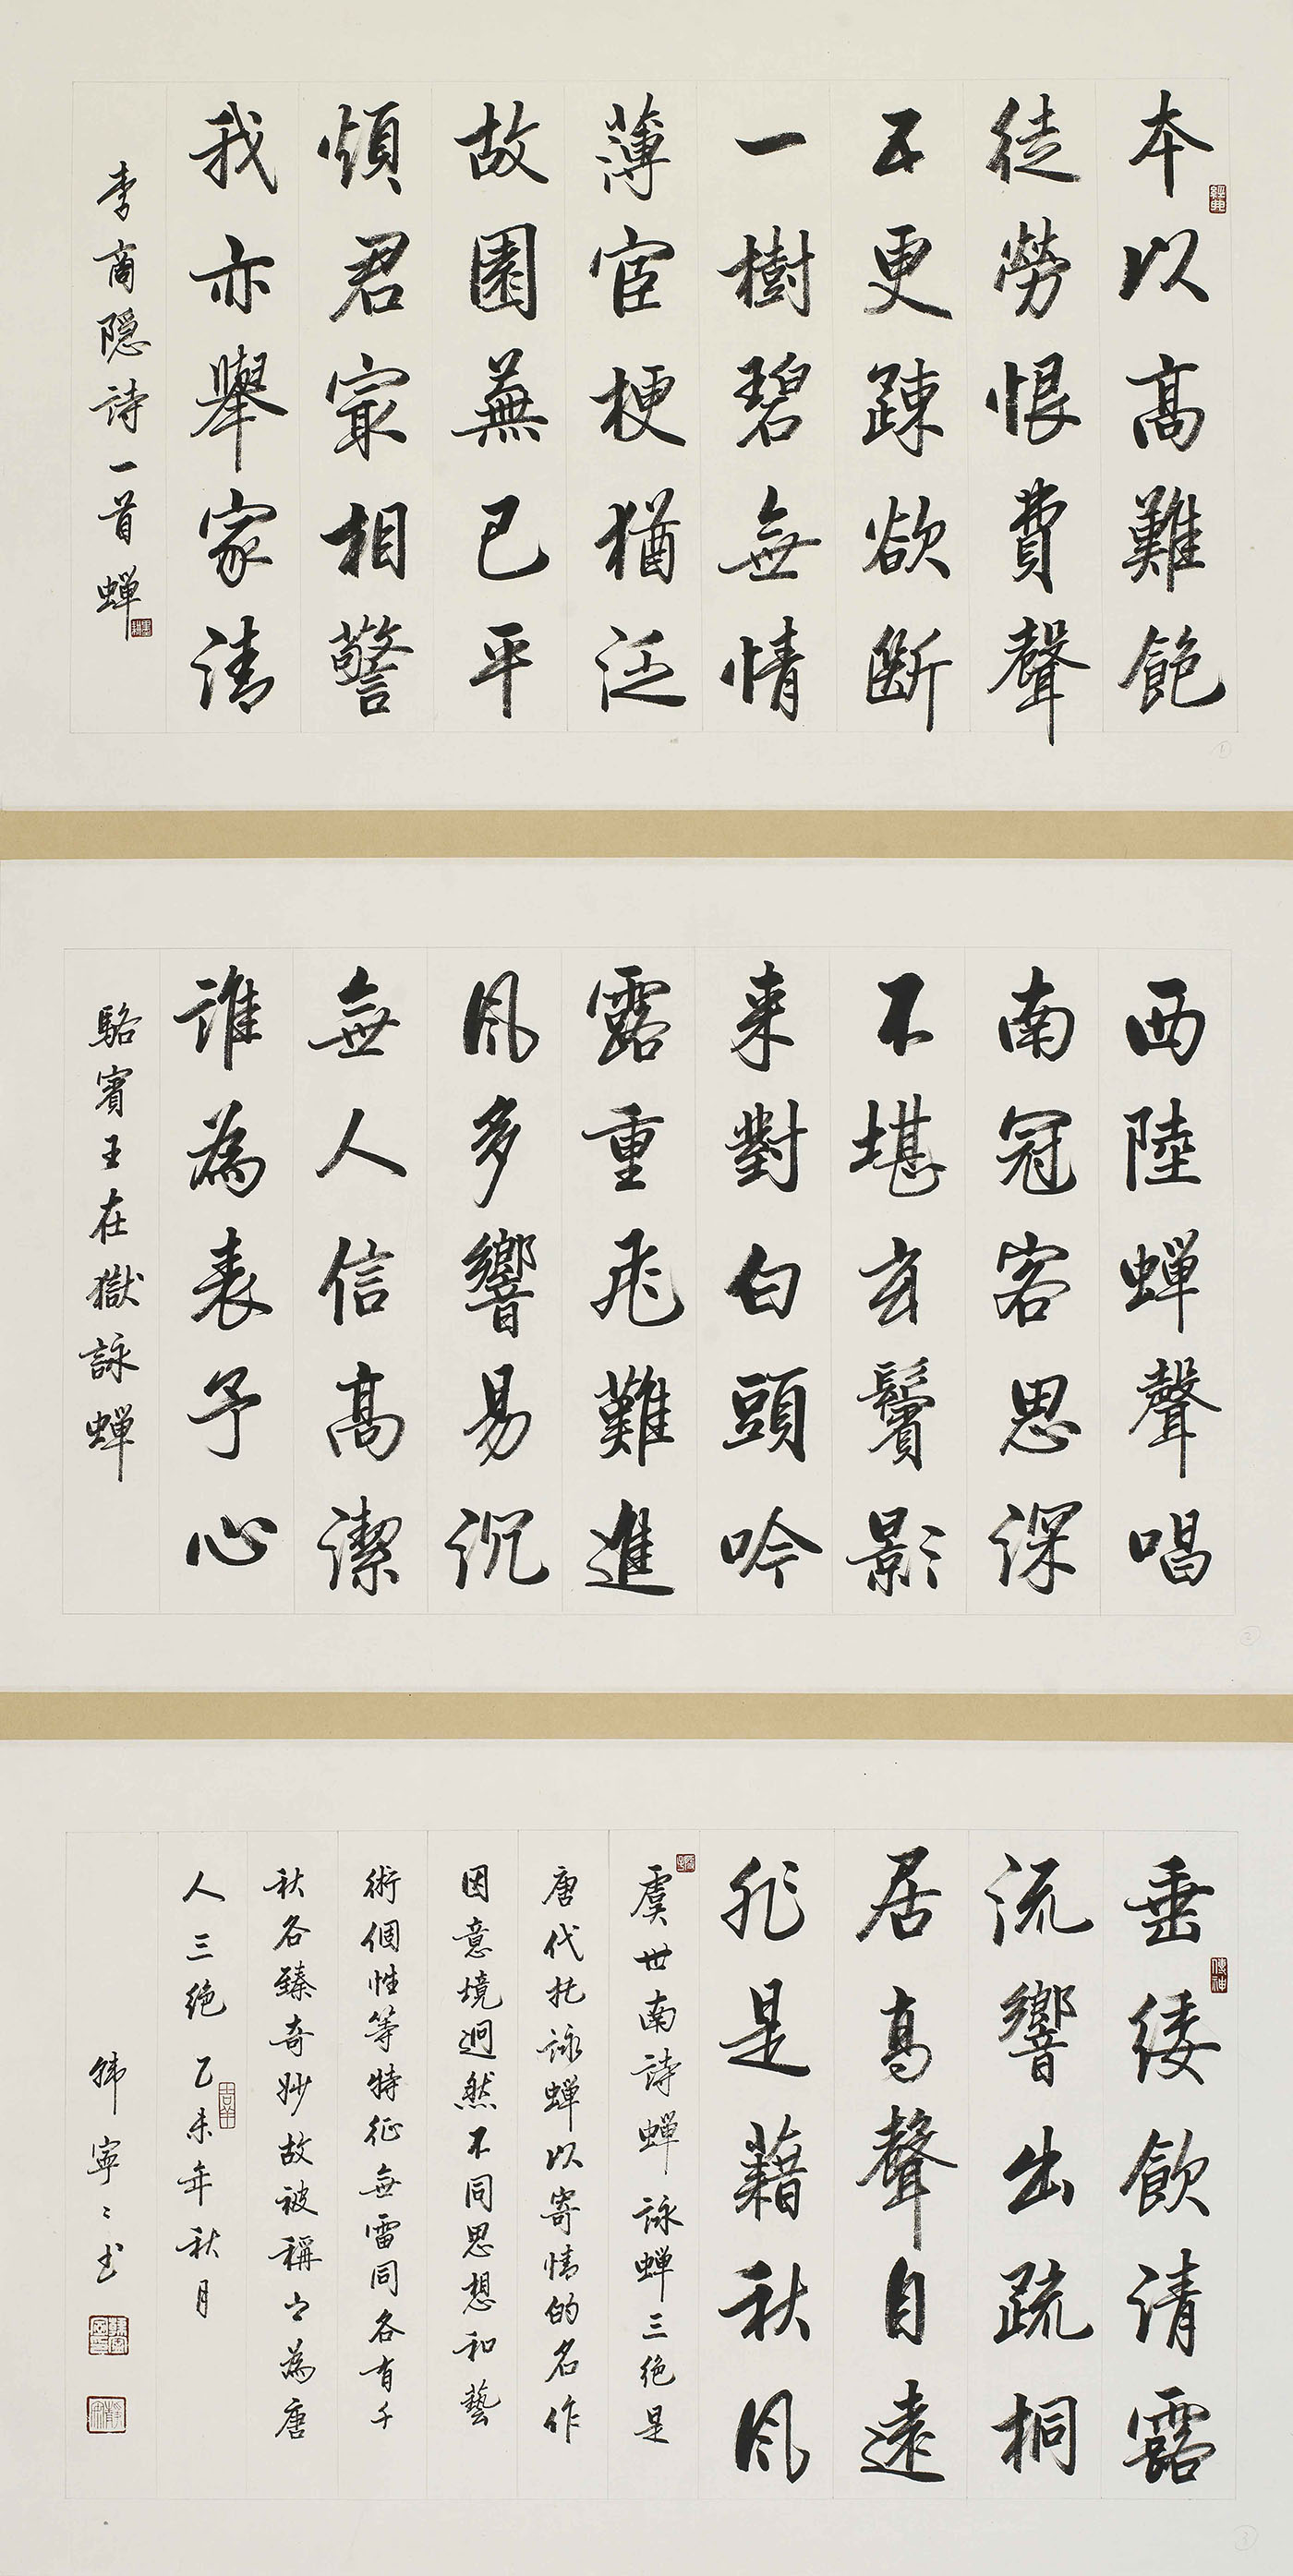 本以高難飽
徒勞恨費聲
五更踈欲斷
一樹碧無情
薄宦梗猶泛
故園蕪已平
煩君最相警
我亦舉家清
李商隐诗一首蝉
西陸蝉聲唱
南冠客思深
不堪玄鬢影
来對白頭吟
露重飛難進
風多響易沉
無人信高潔
誰為表予心
駱賓王在獄詠蝉
垂緌飲清露
流響出疏桐
居高聲自遠
非是藉秋風
虞世南诗蝉 詠蝉三绝是
唐代托詠蝉以寄情的名作
因意境迥然不同思想和藝
術個性等特征無雷同各有千
秋各臻奇妙故被稱之為唐
人三绝 乙未年秋月
韩寧寧书